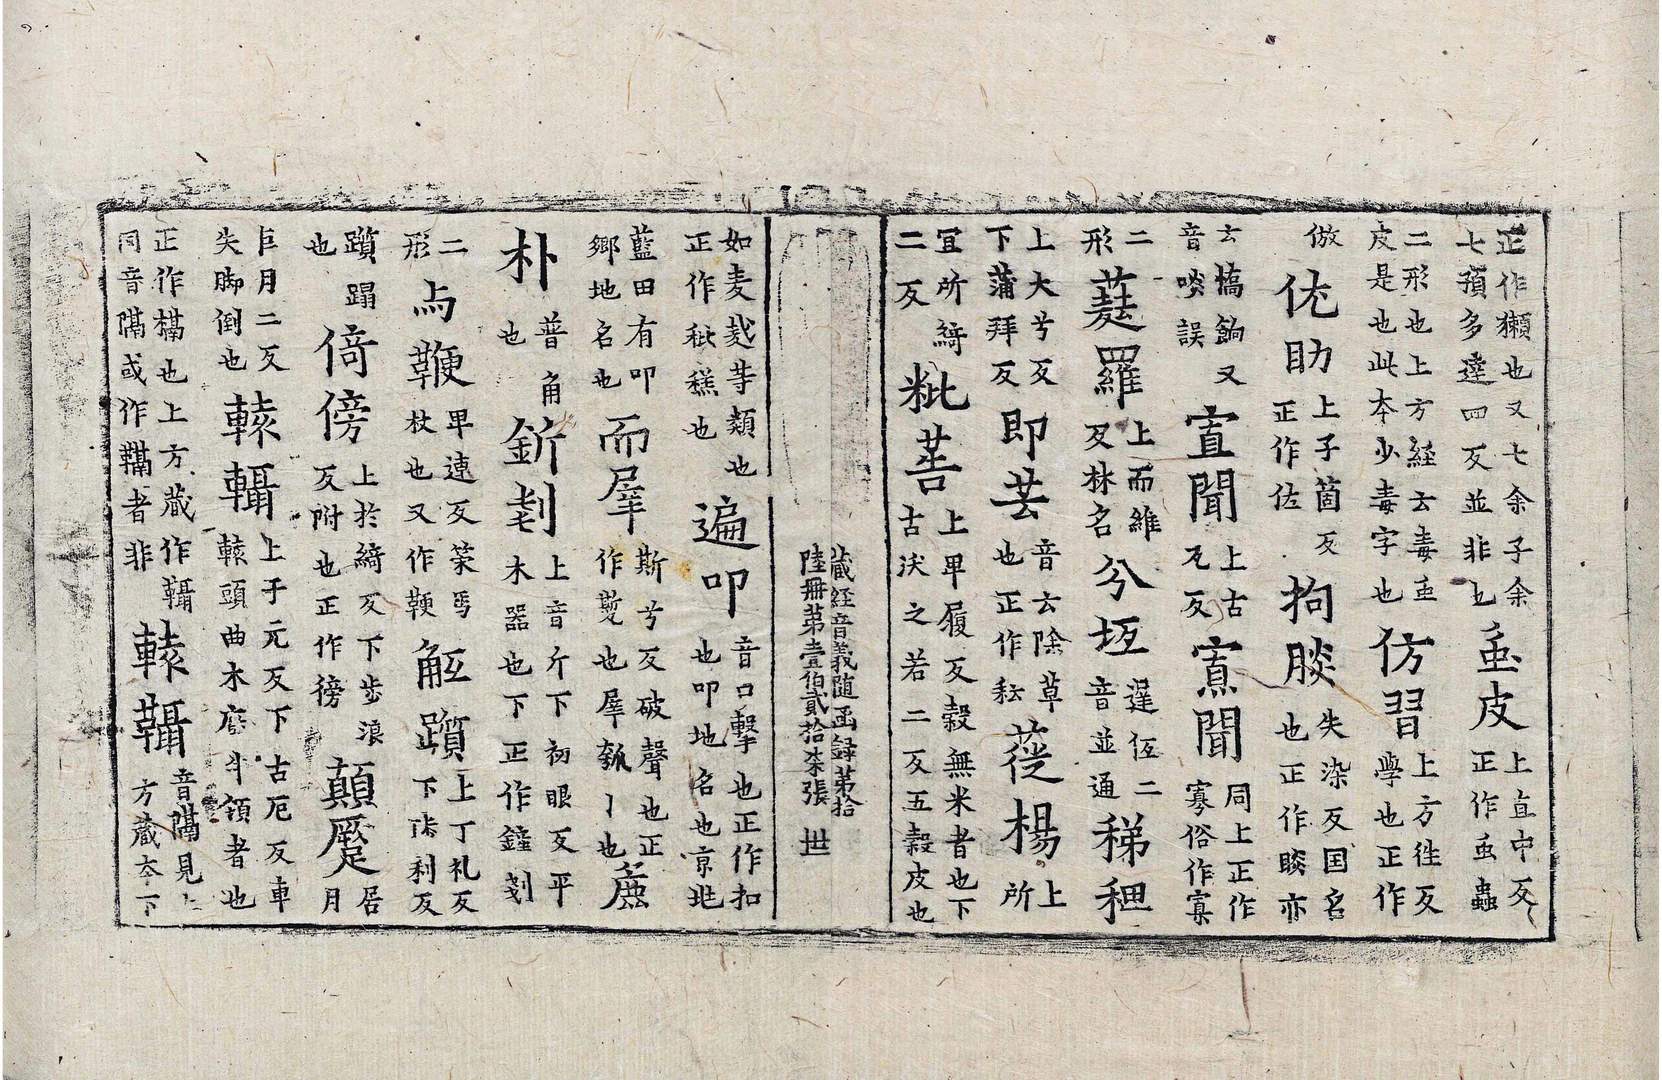 正作獺也又七余子余七預多達四反並非也䖝皮上直中反正作䖝蟲
二形也上方經云毒䖝皮是也此本少毒字也仿習上方往反學也正作
倣佐助上子箇反正作佐拘朕失染反国名也正作睒亦
云橋餉又音啖誤寘聞上古瓦反寡聞同上正作寡俗作寡
二形蕤羅上而維反林名兮㘴遅伍二音並通稊稗
上大兮反下蒲拜反即芸音云除草也正作耘蓰楊上所
冝所綺二反粃䓤上卑履反穀無米者也下古沃之若二反五穀皮也
藏經音義隨函録第拾陸冊第壹伯貳拾柒張 世
如麦䴬等類也正作秕糕也遍叩音口擊也正作扣也叩地名也京兆
藍田有叩鄉地名也而犀斯兮反破聲也正作嘶也犀瓠〻也麁
朴普角也釿剗上音斤下初眼反平木器也下正作鏟剗
二形与鞭卑連反策馬杖也又作鞭觝躓上丁礼反下陟利反
躓蹋也倚傍上於綺反下步浪反附也正作徬顛蹷居月
巨月二反失脚倒也轅䡾上于元反下古厄反車轅頭曲木應牛領者也
正作槅也上方藏作䡾轅䩹音隔見上方藏夲下同音隔或作䩹者非